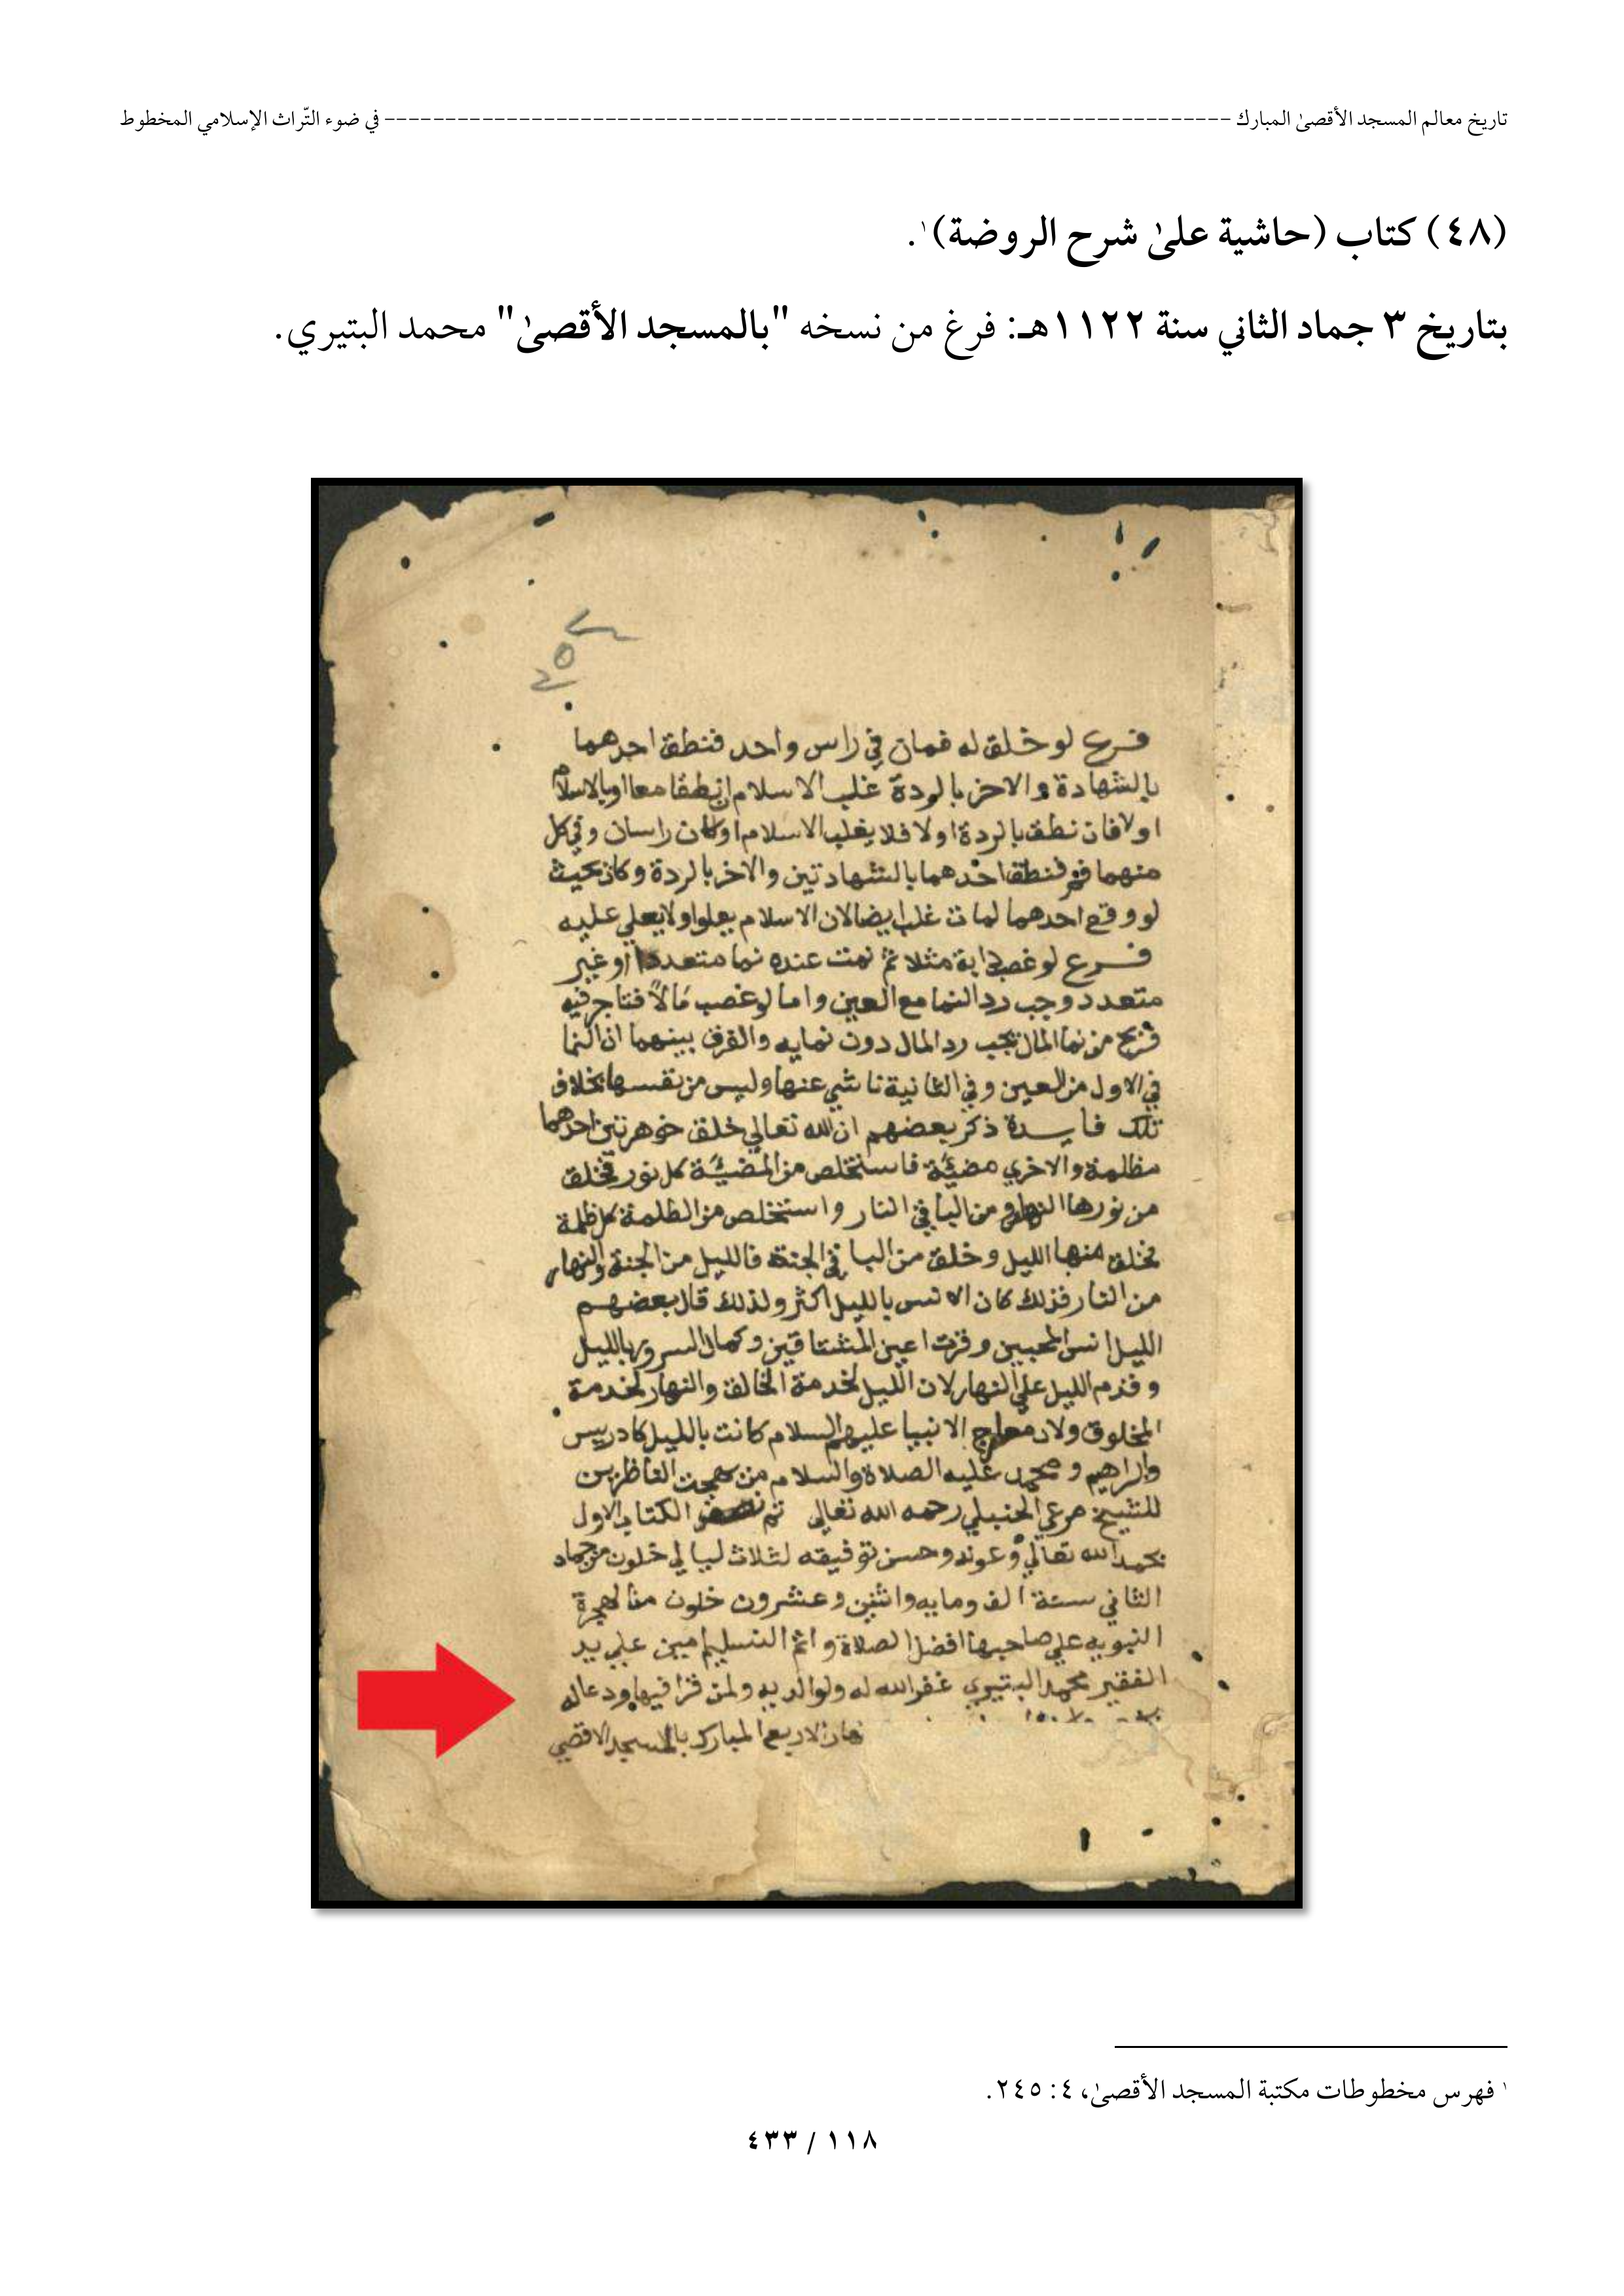 تاريخ معالم المسجد الأقصىٰ المبارك ---------------------------------------------------------------------- في ضوء التّراث الإسلامي المخطوط
(٤٨) كتاب (حاشية علىٰ شرح الروضة)١.
بتاريخ ٣ جماد الثاني سنة ١١٢٢هـ: فرغ من نسخه "بالمسجد الأقصىٰ" محمد البتيري.
فرع لو خلق له فمان في راس واحد فنطق احدهما
بالشهادة والاخر بالردة غلب الاسلام ان نطقا معا او بالاسلام
اولا فان نطق بالردة اولا فلا يغلب الاسلام او كان راسان وفي كل
منهما فم فنطق احدهما بالشهادتين والاخر بالردة وكان بحيث
لو وقع احدهما لمات غلب ايضا لان الاسلام يعلوا ولا يعلي عليه
فرع لو غصب دابة مثلا ثم نمت عنده نما متعددا او غير
متعدد وجب رد النما مع العين واما لو غصب مالاً فتاجر فيه
فربح من نما المال يجب رد المال دون نمايه والفرق بينهما ان النما
في الاول من العين وفي الثانية ناشي عنها وليس من نفسها بخلاف
تلك فايدة ذكر بعضهم ان الله تعالي خلق جوهرتين احدهما
مظلمة والاخري مضيئة فاستخلص من المضيئة كل نور فخلق
من نورها النهار ومن الباقي النار واستخلص من الظلمة كل ظلمة
فخلق منها الليل وخلق من الباقي الجنة فالليل من الجنة والنهار
من النار فزلك كان الانس بالليل اكثر ولذلك قال بعضهم
الليل انس المحبين وقرت اعين المشتاقين وكمال السرور بالليل
وقدم الليل علي النهار لان الليل لخدمة الخالق والنهار لخدمة
المخلوق ولان معارج الانبيا عليهم السلام كانت بالليل كادريس
وابراهيم ومحمد عليه الصلاة والسلام من بهجت الناظرين
للشيخ مرعي الحنبلي رحمه الله تعالي تم نصف الكتاب الاول
بحمد الله تعالي وعونه وحسن توفيقه لثلاث ليالي خلون من جماد
الثاني سنة الف ومايه واثنين وعشرون خلون من الهجرة
النبويه علي صاحبها افضل الصلاة واتم التسليم امين علي يد
الفقير محمد البتيري غفر الله له ولوالديه ولمن قرا فيها ودعا له
نهار الاربع المبارك بالمسجد الاقصي
١ فهرس مخطوطات مكتبة المسجد الأقصىٰ، ٤: ٢٤٥.
١١٨ / ٤٣٣